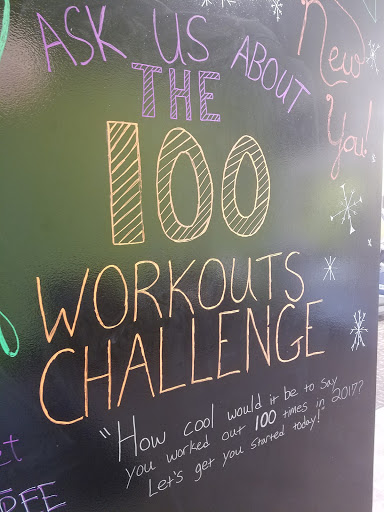 ASK US ABOUT
THE
100
WORKOUTS
CHALLENGE
"How cool would it be to say
you worked out 100 times in 2017?
Let's get you started today!"
New
You!